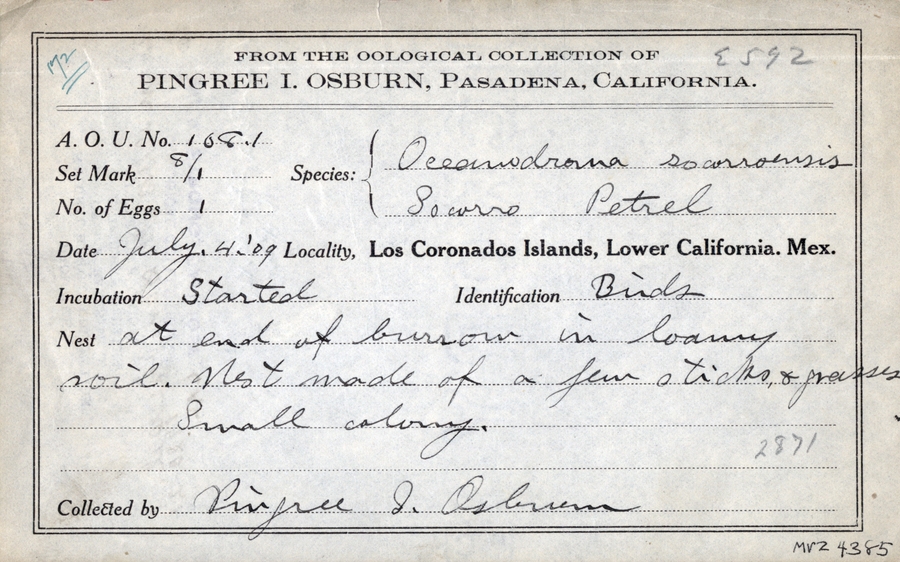 M2
FROM THE OOLOGICAL COLLECTION OF
E592
PINGREE I. OSBURN, PASADENA, CALIFORNIA.
A. O. U. No. 108.1
Set Mark 8/1
Species: Oceanodroma socorroensis
No. of Eggs 1
Socorro Petrel
Date July. 4.'09 Locality, Los Coronados Islands, Lower California. Mex.
Incubation Started Identification Birds
Nest at end of burrow in loamy
soil. Nest made of a few sticks, & grasses
Small colony.
2871
Collected by Pingree I. Osburn
MVZ 4385